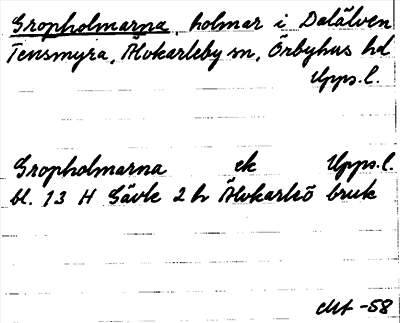 Gropholmarna, holmar i Dalälven
Tensmyra, Älvkarleby sn, Örbyhus hd
Upps.l.
Gropholmarna ek Upps.l.
bl. 13 H Gävle 2 h Älvkarleö bruk
-58